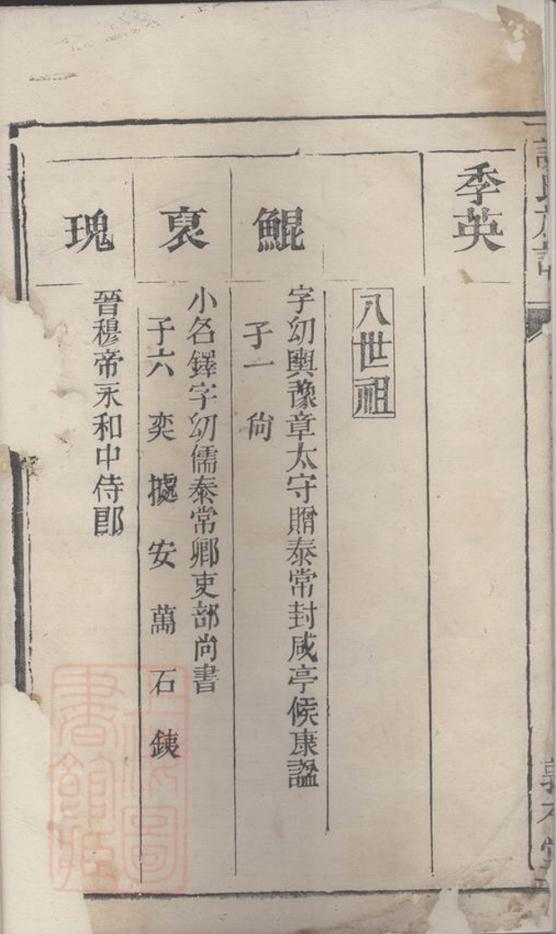 季英
八世祖
鯤
字幼輿豫章太守贈泰常封咸亭候康謚
子一 尙
裒
小名鐸字幼儒泰常卿吏部尚書
子六 奕 㩀 安 萬 石 鉄
瑰
晉穆帝永和中侍郎